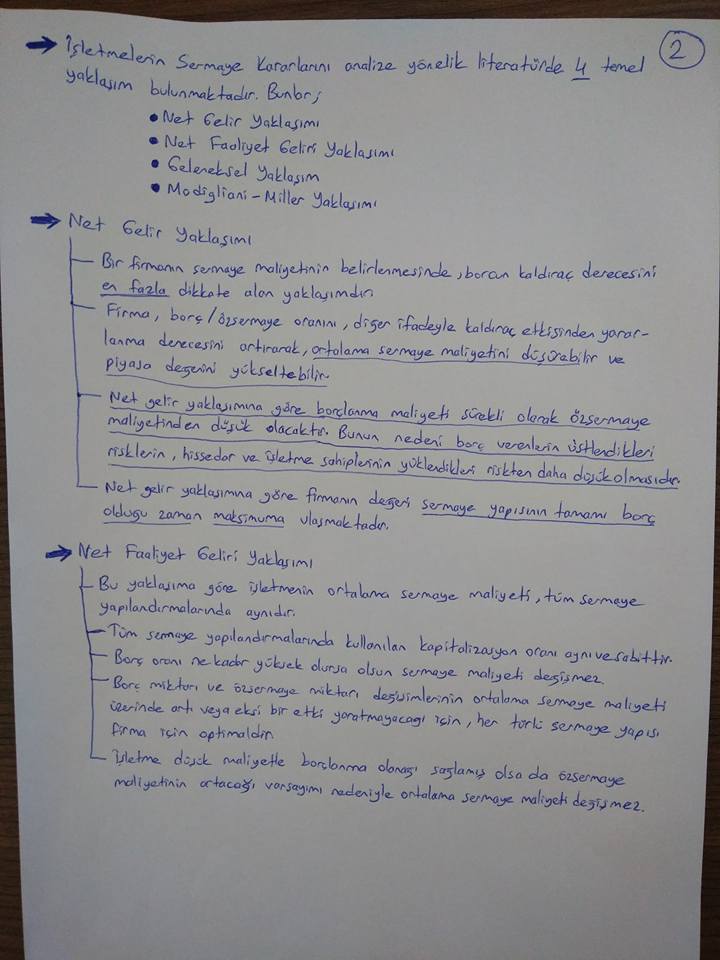 2
→ İşletmelerin Sermaye Kararlarını analize yönelik literatürde 4 temel
yaklaşım bulunmaktadır. Bunlar;
• Net Gelir Yaklaşımı
• Net Faaliyet Geliri Yaklaşımı
• Geleneksel Yaklaşım
• Modigliani-Miller Yaklaşımı
→ Net Gelir Yaklaşımı
Bir firmanın sermaye maliyetinin belirlenmesinde, borcun kaldıraç derecesini
en fazla dikkate alan yaklaşımdır.
Firma, borç/özsermaye oranını, diğer ifadeyle kaldıraç etkisinden yarar-
lanma derecesini artırarak, ortalama sermaye maliyetini düşürebilir ve
piyasa değerini yükseltebilir.
Net gelir yaklaşımına göre borçlanma maliyeti sürekli olarak özsermaye
maliyetinden düşük olacaktır. Bunun nedeni borç verenlerin üstlendikleri
risklerin, hissedar ve işletme sahiplerinin yüklendikleri riskten daha düşük olmasıdır.
Net gelir yaklaşımına göre firmanın değeri sermaye yapısının tamamı borç
olduğu zaman maksimuma ulaşmaktadır.
→ Net Faaliyet Geliri Yaklaşımı
Bu yaklaşıma göre işletmenin ortalama sermaye maliyeti, tüm sermaye
yapılandırmalarında aynıdır.
Tüm sermaye yapılandırmalarında kullanılan kapitalizasyon oranı aynı ve sabittir.
Borç oranı ne kadar yüksek olursa olsun sermaye maliyeti değişmez.
Borç miktarı ve özsermaye miktarı değişimlerinin ortalama sermaye maliyeti
üzerinde artı veya eksi bir etki yaratmayacağı için, her türlü sermaye yapısı
firma için optimaldir.
İşletme düşük maliyetle borçlanma olanağı sağlamış olsa da özsermaye
maliyetinin artacağı varsayımı nedeniyle ortalama sermaye maliyeti değişmez.